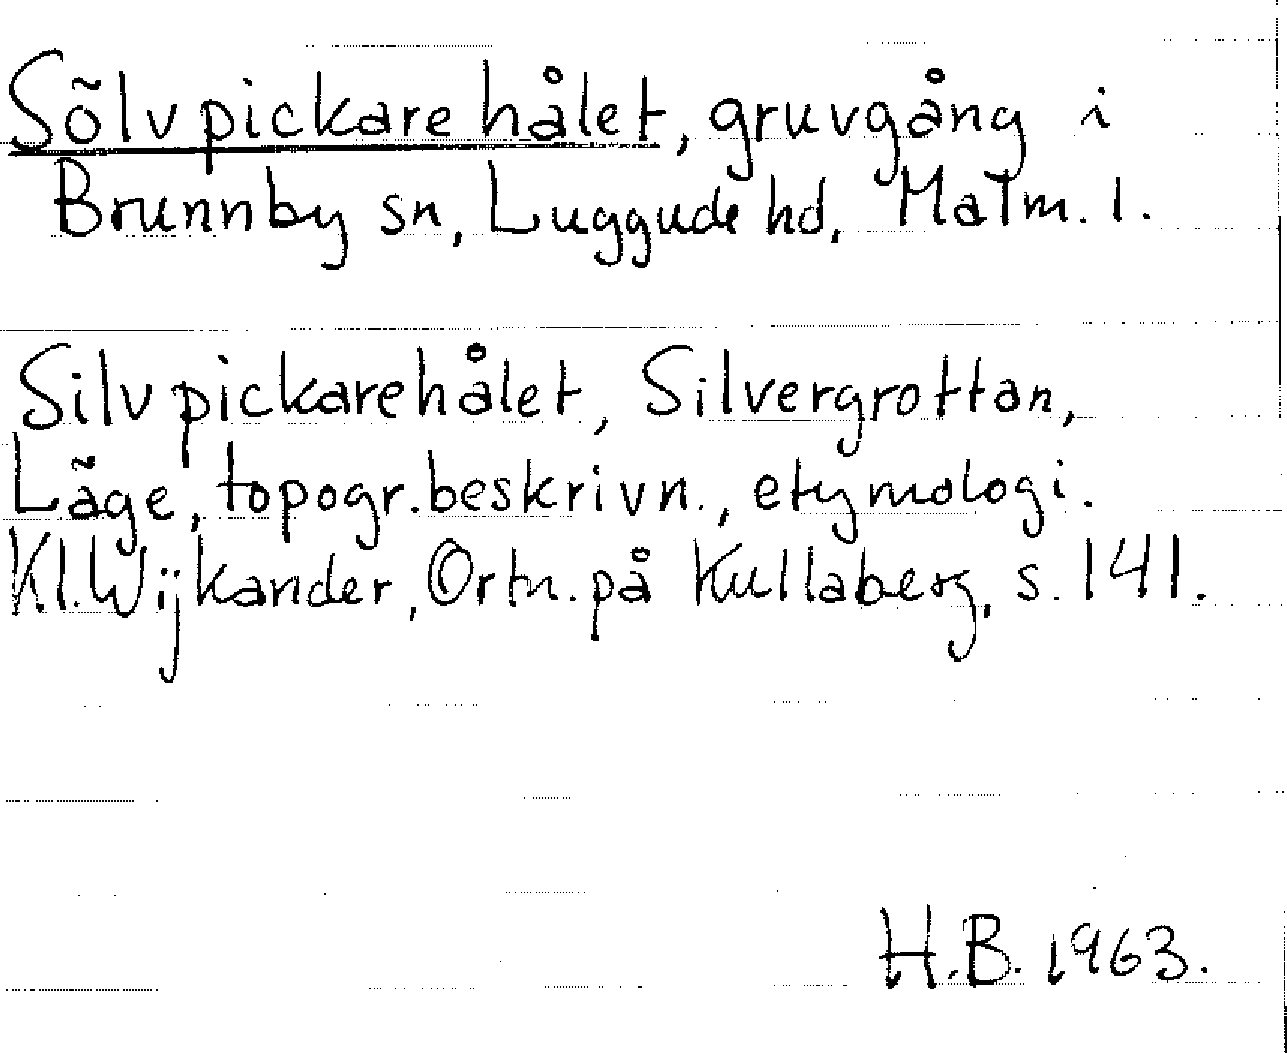 Sölvpickarehålet, gruvgång i
Brunnby sn, Luggude hd, Malm. l.
Silvpickarehålet, Silvergrottan,
Läge, topogr. beskrivn., etymologi.
Kl. Wijkander, Ortn. på Kullaberg, s. 141.
H.B. 1963.